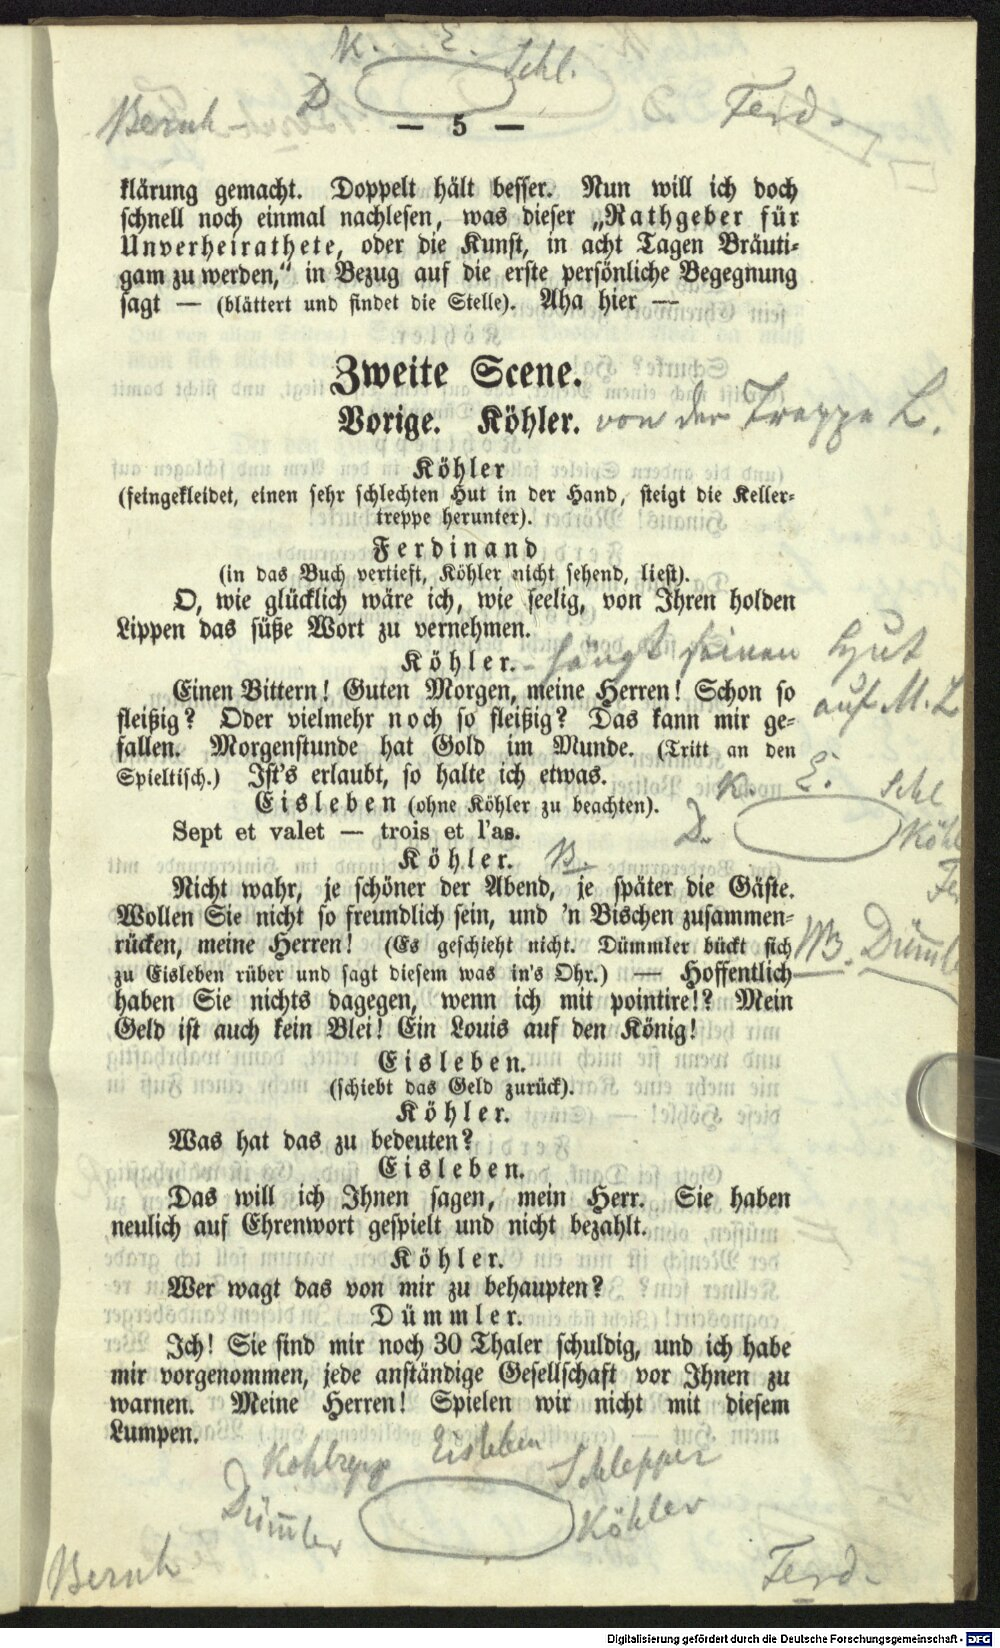 K. E. Schl.
D
Bernh
Ferd.
— 5 —
klärung gemacht. Doppelt hält besser. Nun will ich doch
schnell noch einmal nachlesen, was dieser „Rathgeber für
Unverheirathete, oder die Kunst, in acht Tagen Bräuti-
gam zu werden,“ in Bezug auf die erste persönliche Begegnung
sagt — (blättert und findet die Stelle). Aha hier —
Zweite Scene.
Vorige. Köhler. von der Treppe L.
Köhler
(feingekleidet, einen sehr schlechten Hut in der Hand, steigt die Keller-
treppe herunter).
Ferdinand
(in das Buch vertieft, Köhler nicht sehend, liest).
O, wie glücklich wäre ich, wie seelig, von Ihren holden
Lippen das süße Wort zu vernehmen.
Köhler. - hängt seinen Hut
auf M. L
Einen Bittern! Guten Morgen, meine Herren! Schon so
fleißig? Oder vielmehr noch so fleißig? Das kann mir ge-
fallen. Morgenstunde hat Gold im Munde. (Tritt an den
Spieltisch.) Ist's erlaubt, so halte ich etwas.
K. E. Schl
Eisleben (ohne Köhler zu beachten).
Sept et valet — trois et l'as.
D. Köhl
Köhler. B.
Fer
Nicht wahr, je schöner der Abend, je später die Gäste.
Wollen Sie nicht so freundlich sein, und 'n Bischen zusammen-
rücken, meine Herren! (Es geschieht nicht. Dümmler bückt sich
Dümle
zu Eisleben rüber und sagt diesem was in's Ohr.) — Hoffentlich
haben Sie nichts dagegen, wenn ich mit pointire!? Mein
Geld ist auch kein Blei! Ein Louis auf den König!
Eisleben.
(schiebt das Geld zurück).
Köhler.
Was hat das zu bedeuten?
Eisleben.
Das will ich Ihnen sagen, mein Herr. Sie haben
neulich auf Ehrenwort gespielt und nicht bezahlt.
Köhler.
Wer wagt das von mir zu behaupten?
Dümmler.
Ich! Sie sind mir noch 30 Thaler schuldig, und ich habe
mir vorgenommen, jede anständige Gesellschaft vor Ihnen zu
warnen. Meine Herren! Spielen wir nicht mit diesem
Lumpen.
Kohlrepp Eisleben Schlepper
Dümler Köhler
Bernh Ferd.
Digitalisierung gefördert durch die Deutsche Forschungsgemeinschaft - DFG